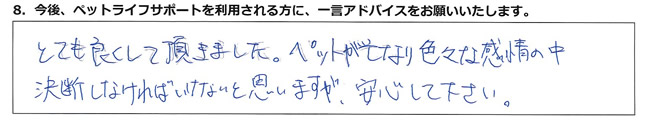 8. 今後、ペットライフサポートを利用される方に、一言アドバイスをお願いいたします。
とても良くして頂きました。ペットが亡くなり色々な感情の中
決断しなければいけないと思いますが、安心して下さい。